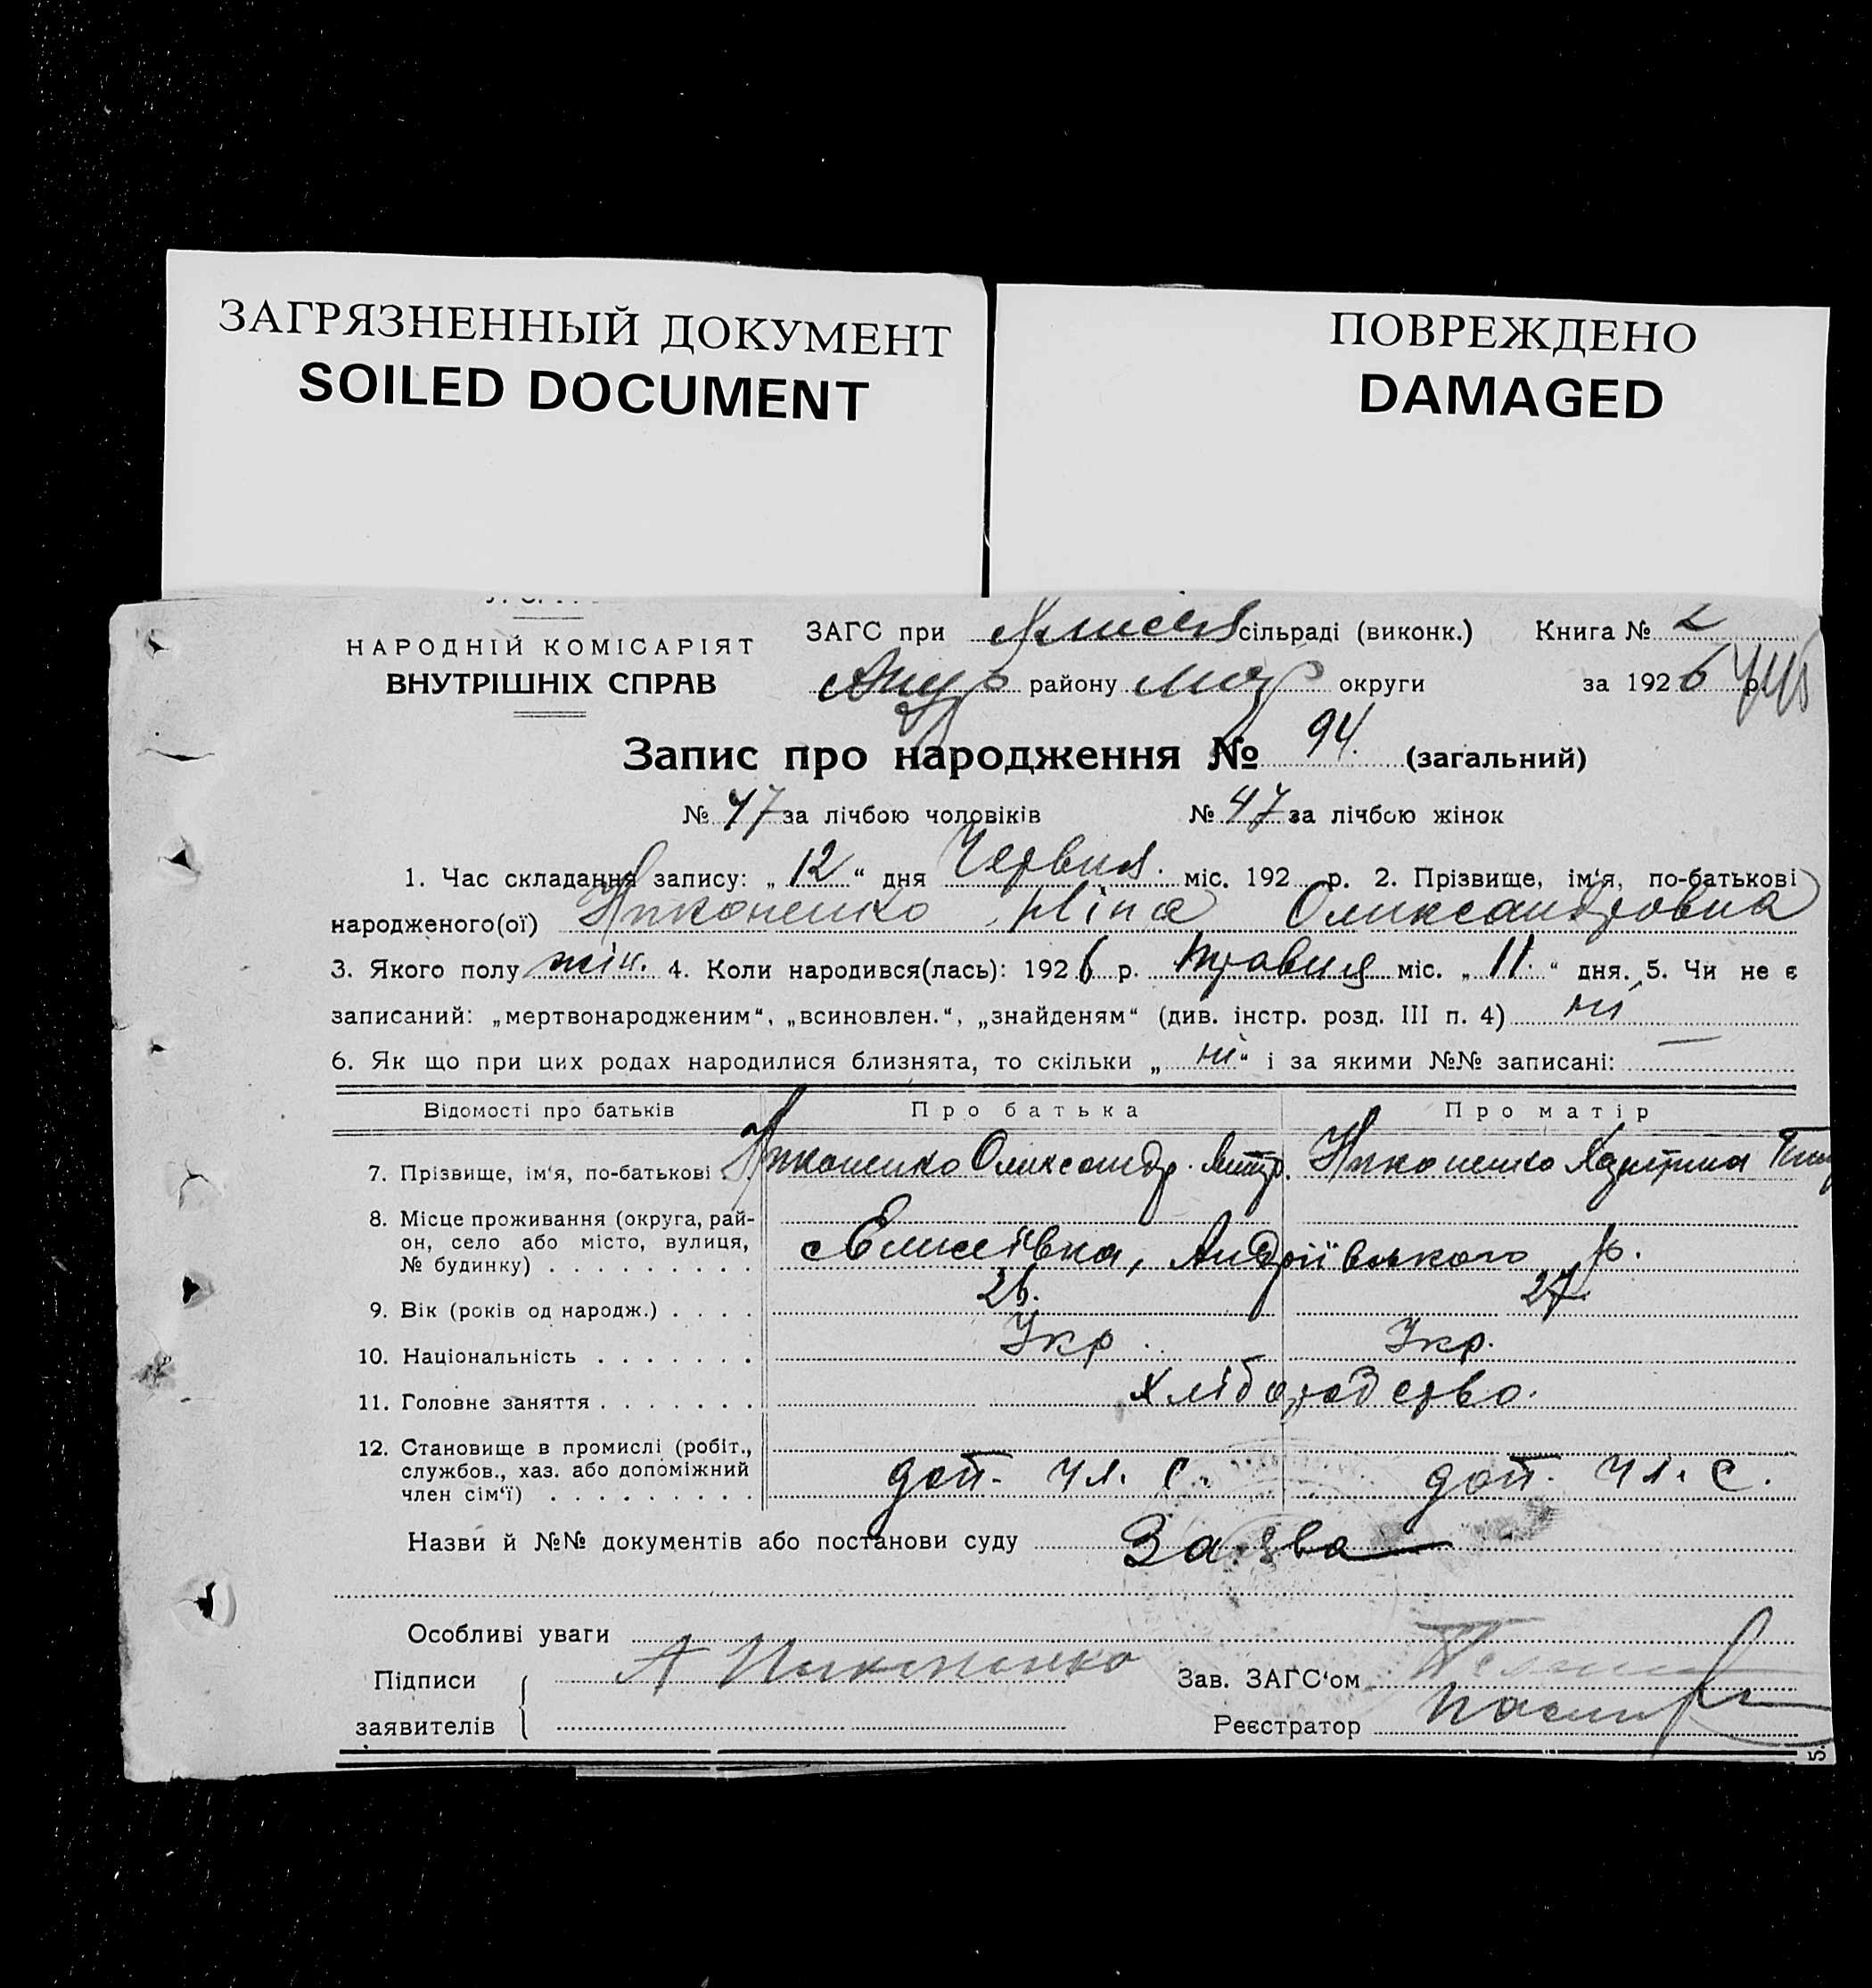 ЗАГРЯЗНЕННЫЙ ДОКУМЕНТ
SOILED DOCUMENT
ПОВРЕЖДЕНО
DAMAGED
НАРОДНІЙ КОМІСАРІЯТ
ВНУТРІШНІХ СПРАВ
ЗАГС при сільраді (виконк.) Книга № 2
району округи за 1926 р.
Запис про народження № 94. (загальний)
№ 47 за лічбою чоловіків № 47 за лічбою жінок
1. Час складання запису: „12“ дня Червня. міс. 192 р. 2. Прізвище, ім‘я, по-батькові
народженого(ої) Никоненко Ніна Олександровна
3. Якого полу жін. 4. Коли народився(лась): 1926 р. Травня міс. „11.“ дня. 5. Чи не є
записаний: „мертвонародженим“, „всиновлен.“, „знайденям“ (див. інстр. розд. III п. 4) ні
6. Як що при цих родах народилися близнята, то скільки „ні“ і за якими №№ записані: —
Відомості про батьків Про батька Про матір
7. Прізвище, ім‘я, по-батькові Никоненко Олександр. Никоненко
8. Місце проживання (округа, рай-
он, село або місто, вулиця,
№ будинку) Єлисеївка, Андріївського р.
9. Вік (років од народж.) 26. 27.
10. Національність Укр. Укр.
11. Головне заняття Хліборобство.
12. Становище в промислі (робіт.,
службов., хаз. або допоміжний
член сім‘ї) доп. чл. с. доп. чл. с.
Назви й №№ документів або постанови суду Заява
Особливі уваги
Підписи А Никоненко Зав. ЗАГС‘ом
заявителів Реєстратор